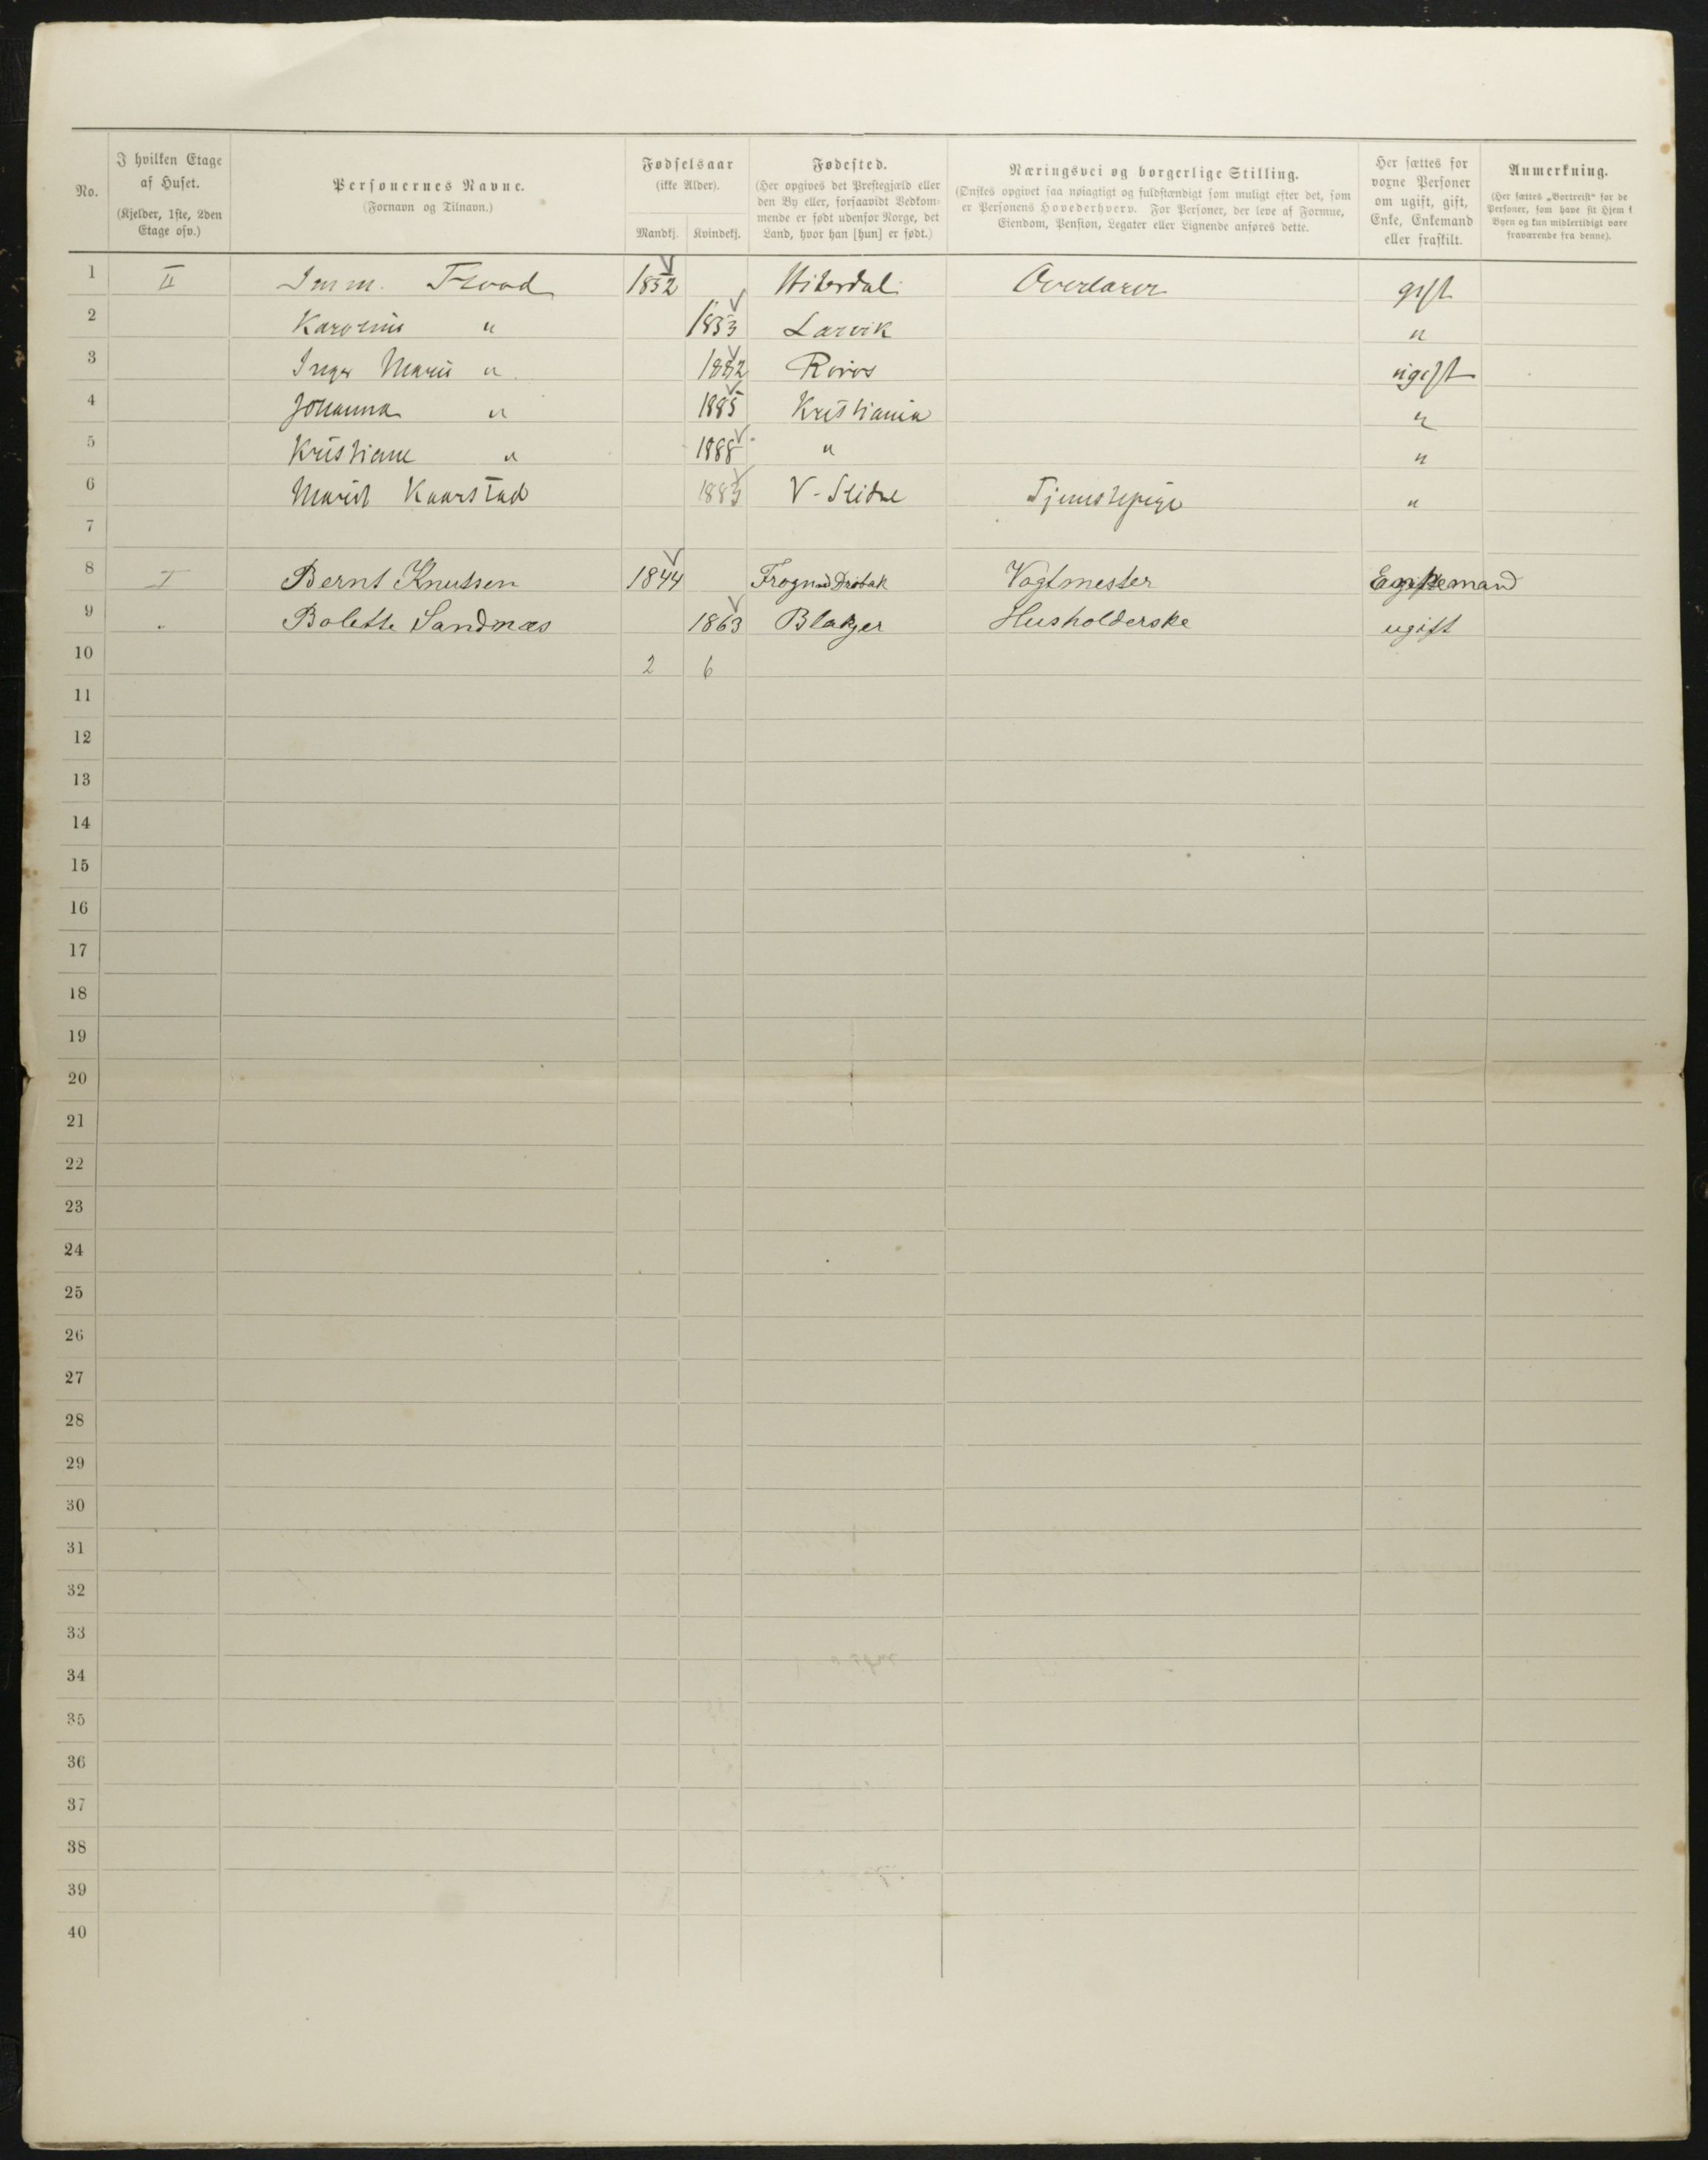 No.
I hvilken Etage af Huset.
(Kjelder, 1ste, 2den Etage osv.)
Personernes Navne.
(Fornavn og Tilnavn.)
Fødselsaar
(ikke Alder).
Mandkj. Kvindekj.
Fødested.
(Her opgives det Præstegjæld eller
den By eller, forsaavidt Vedkom-
mende er født udenfor Norge, det
Land, hvor han [hun] er født.)
Næringsvei og borgerlige Stilling.
(Ønskes opgivet saa nøiagtigt og fuldstændigt som muligt efter det, som
er Personens Hovederhverv. For Personer, der leve af Formue,
Eiendom, Pension, Legater eller Lignende anføres dette.
Her sættes for
voxne Personer
om ugift, gift,
Enke, Enkemand
eller fraskilt.
Anmerkning.
(Her sættes „Bortreist“ for de
Personer, som have sit Hjem i
Byen og kun midlertidigt være
fraværende fra denne).
1 II Imm. Flood 1852 Hiterdal Overlærer gift
2 Karoline " 1853 Larvik "
3 Inger Marie " 1882 Røros ugift
4 Johanna " 1885 Kristiania "
5 Kristiane " 1888 " "
6 Marit Kaarstad 1883 V-Slidre Tjenestepige "
7
8 I Bernt Knutsen 1844 Frogn Drøbak Vagtmester Enkemand
9 " Bolette Sandnæs 1863 Blakjer Husholderske ugift
10 2 6
11
12
13
14
15
16
17
18
19
20
21
22
23
24
25
26
27
28
29
30
31
32
33
34
35
36
37
38
39
40